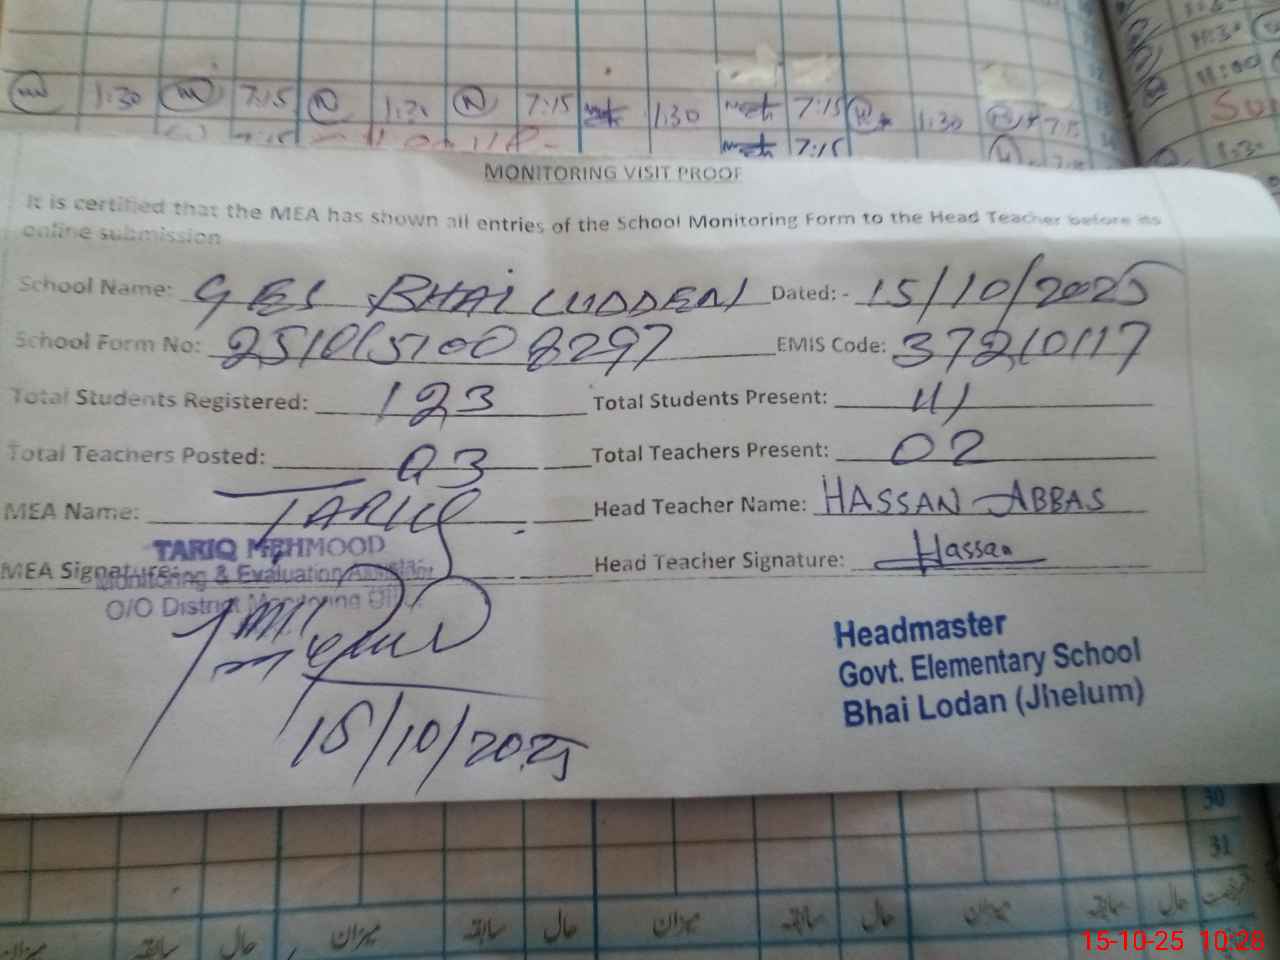 1:30 7:15 N 1:30 N 7:15 1:30 7:15 1:30 7:15
7:15
11:30
11:00
1:30
MONITORING VISIT PROOF
It is certified that the MEA has shown all entries of the School Monitoring Form to the Head Teacher before its
online submission
School Name: GES BHAI LUDDEN Dated: - 15/10/2025
School Form No: EMIS Code: 37210117
Total Students Registered: 123 Total Students Present:
Total Teachers Posted: 03 Total Teachers Present: 02
MEA Name: TARIQ Head Teacher Name: HASSAN ABBAS
TARIQ MEHMOOD
MEA Signature: Head Teacher Signature: Hassan
Monitoring & Evaluation Assistant
O/O District Monitoring Officer
15/10/2025
Headmaster
Govt. Elementary School
Bhai Lodan (Jhelum)
30
31
میزان سابقہ حال میزان سابقہ حال میزان سابقہ حال میزان سابقہ حال
15-10-25 10:28